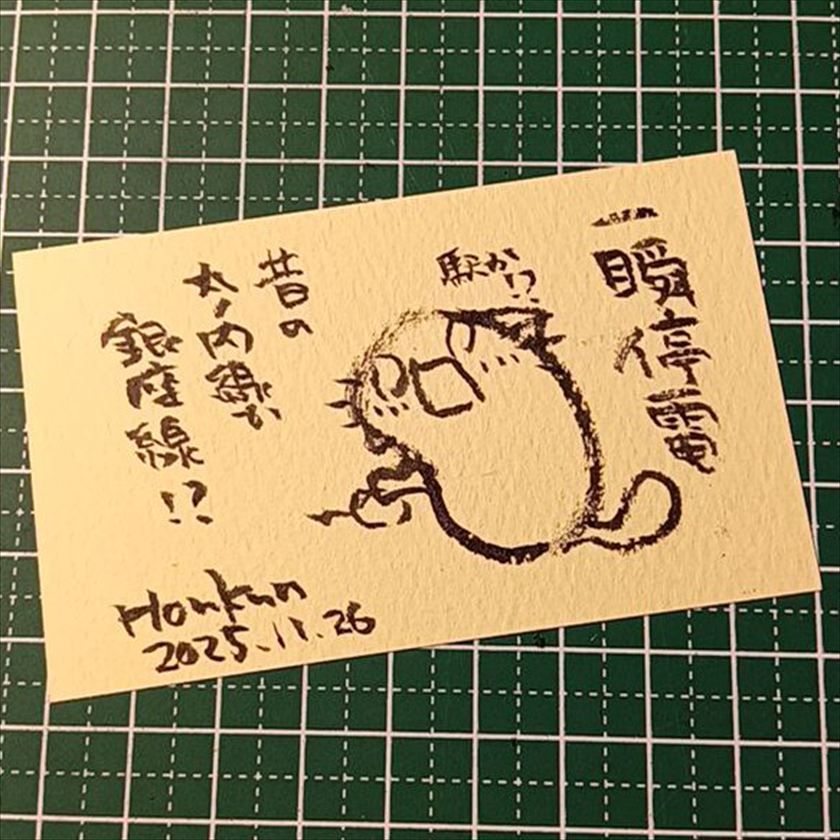 一瞬停電
駅か!?
昔の
丸ノ内線か
銀座線!?
Honkun
2025.11.26